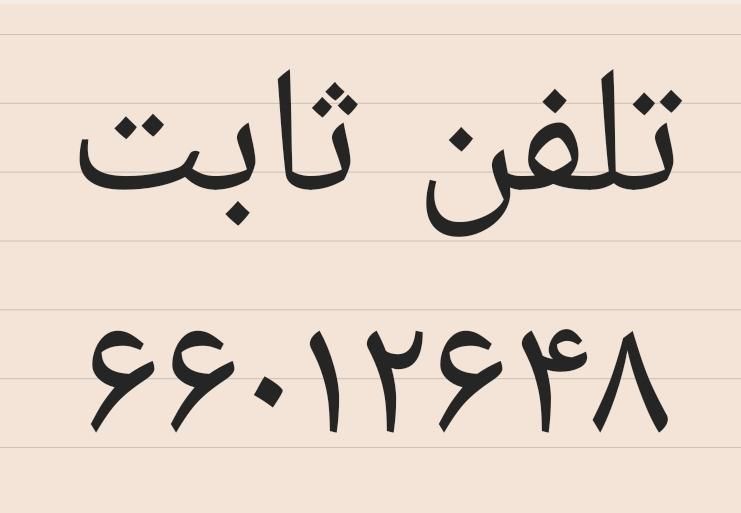 تلفن ثابت
۶۶۰۱۲۶۴۸